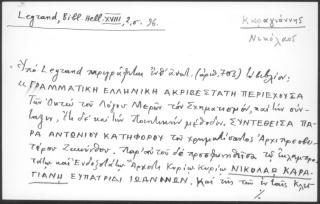 Legrand, Bibl. Hell. XVIII, 2, σ. 96.
Καραγιάννης
Νικόλαος
Ὑπό Legrand περιγράφεται (ἀριθ. 703) βιβλίον:
"ΓΡΑΜΜΑΤΙΚΗ ΕΛΛΗΝΙΚΗ ΑΚΡΙΒΕΣΤΑΤΗ ΠΕΡΙΕΧΟΥΣΑ
Τῶν Ὀκτώ τοῦ Λόγου Μερῶν τόν Σχηματισμόν, καί τήν σύν-
ταξιν, ἔτι δέ καί τήν Ποιητικήν μέθοδον, ΣΥΝΤΕΘΕΙΣΑ ΠΑ-
ΡΑ ΑΝΤΩΝΙΟΥ ΚΑΤΗΦΟΡΟΥ τοῦ χρηματίσαντος Ἀρχιπρεσβυ-
τέρου Ζακύνθου. Παρ' αὐτοῦ δέ προσφωνηθεῖσα τῷ ἐκλαμπρο-
τάτῳ καί Ἐνδοξοτάτῳ Ἄρχοντι Κυρίῳ Κυρίῳ ΝΙΚΟΛΑῼ ΚΑΡΑ-
ΓΙΑΝΗ ΕΥΠΑΤΡΙΔΙ ΙΩΑΝΝΙΝΩΝ. Καί τοῖς ἐν